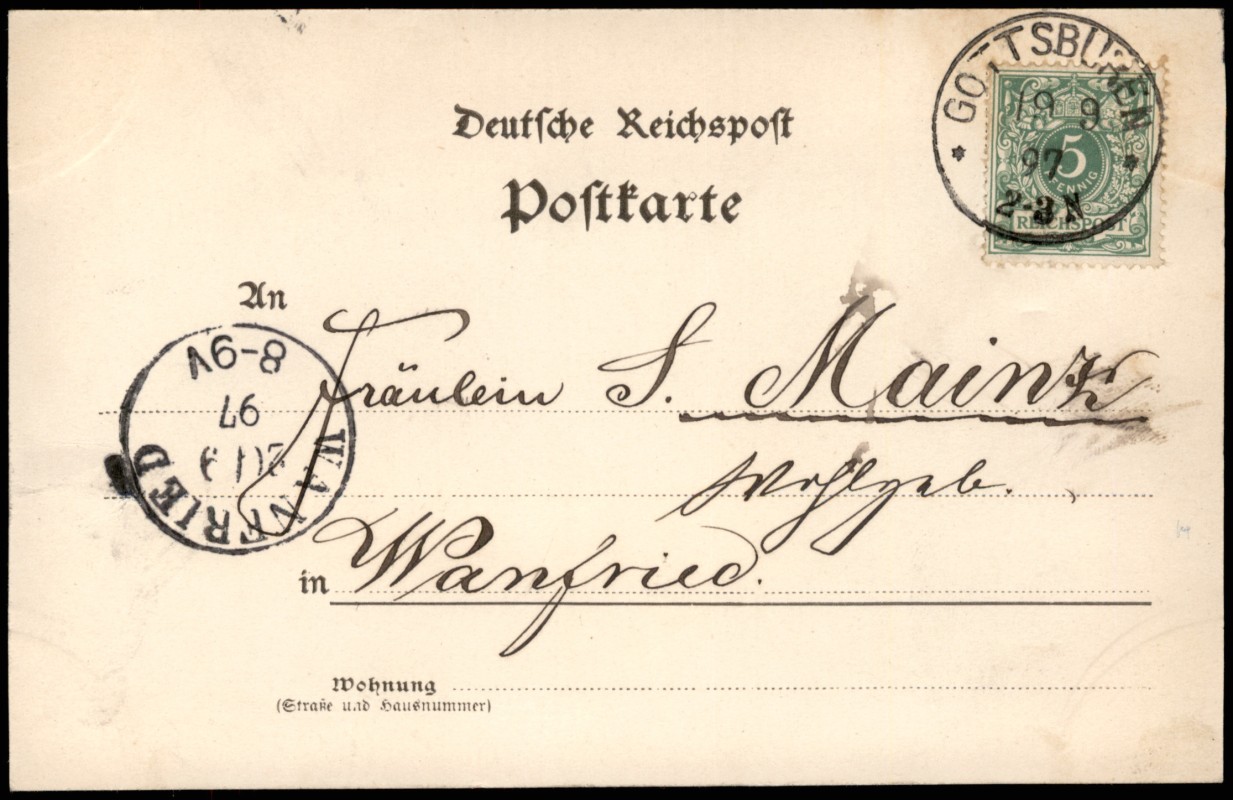 GOTTSBÜREN
19 9
97
2-3 N
5
PFENNIG
REICHSPOST
Deutsche Reichspost
Postkarte
An
Fräulein S. Mainz
Wohlgeb.
in Wanfried.
WANFRIED
20 9
97
8-9V
Wohnung
(Straße und Hausnummer)